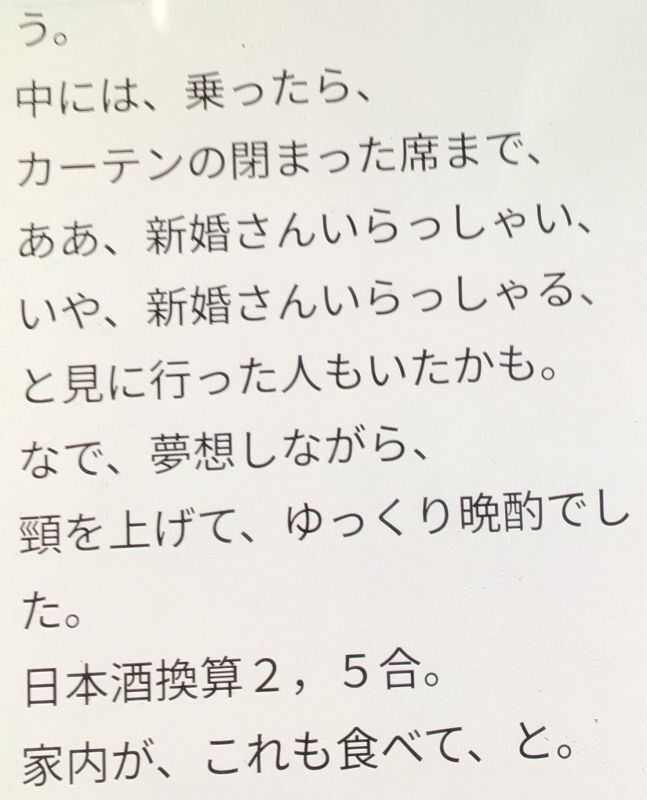 う。
中には、乗ったら、
カーテンの閉まった席まで、
ああ、新婚さんいらっしゃい、
いや、新婚さんいらっしゃる、
と見に行った人もいたかも。
なで、夢想しながら、
頸を上げて、ゆっくり晩酌でし
た。
日本酒換算２，５合。
家内が、これも食べて、と。